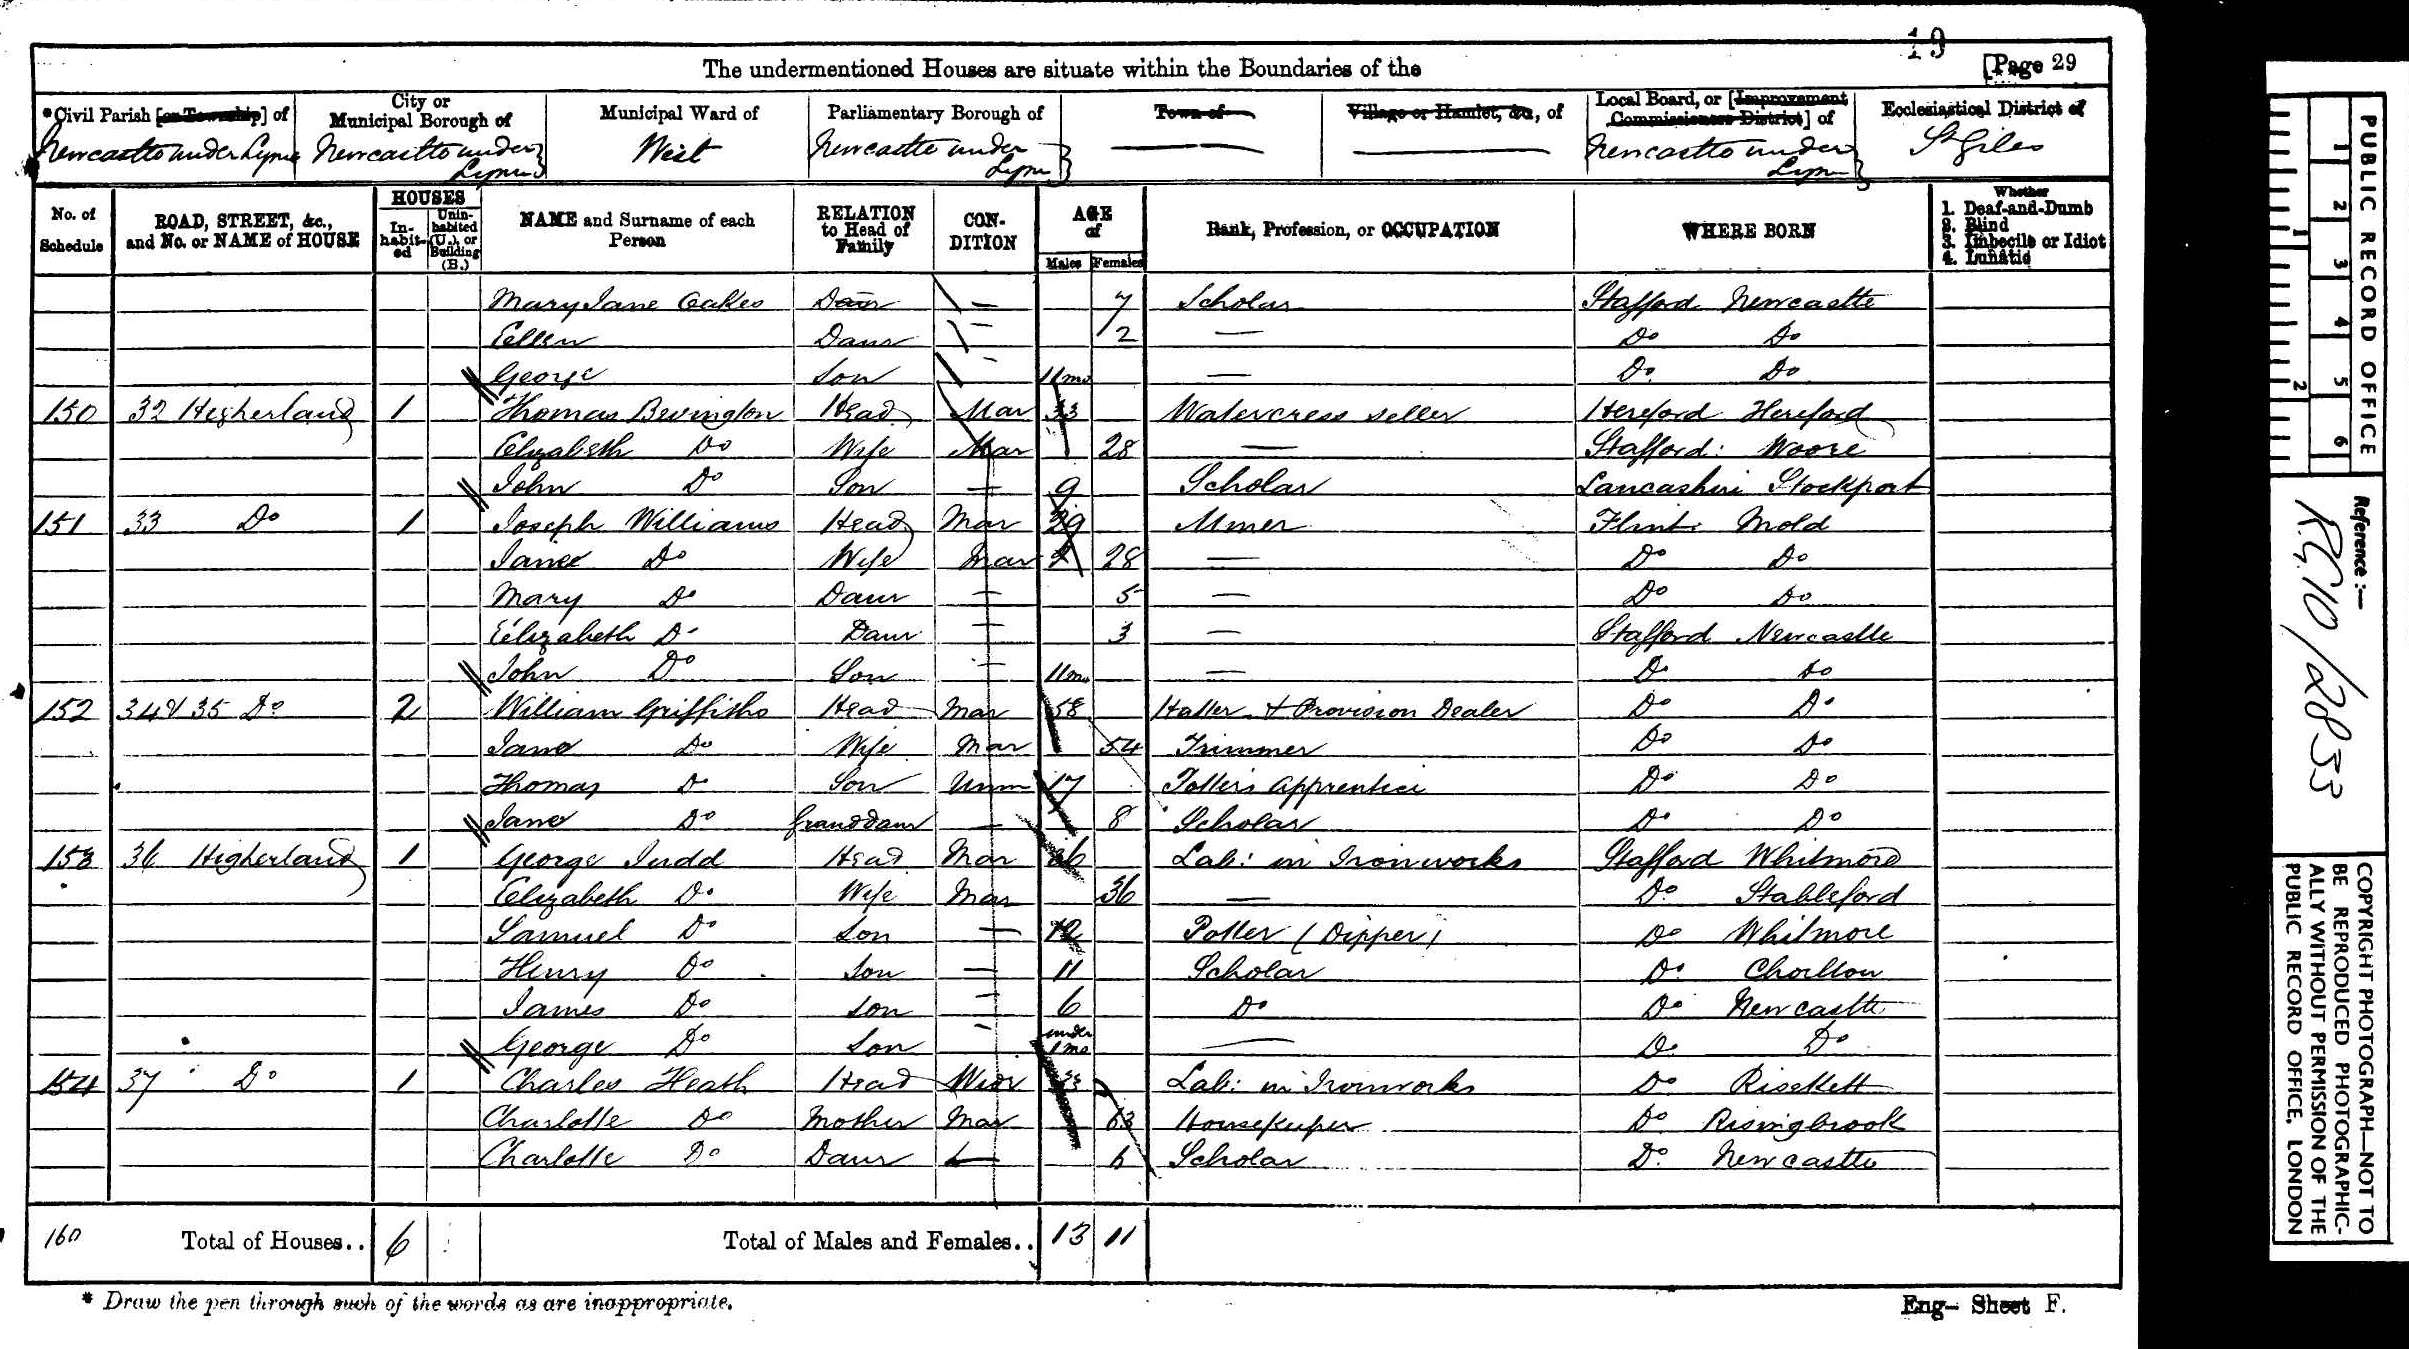 19
[Page 29
The undermentioned Houses are situate within the Boundaries of the
*Civil Parish [or Township] of
City or Municipal Borough of
Municipal Ward of
Parliamentary Borough of
Town of
Village or Hamlet, &c., of
Local Board, or [Improvement Commissioners District] of
Ecclesiastical District of
Newcastle under Lyme
Newcastle under Lyme
West
Newcastle under Lyme
Newcastle under Lyme
St Giles
No. of Schedule
ROAD, STREET, &c., and No. or NAME of HOUSE
HOUSES
In-habit-ed
Unin-habited (U.), or Building (B.)
NAME and Surname of each Person
RELATION to Head of Family
CON-DITION
AGE of
Males
Females
Rank, Profession, or OCCUPATION
WHERE BORN
Whether
1. Deaf-and-Dumb
2. Blind
3. Imbecile or Idiot
4. Lunatic
Mary Jane Oakes Daur — 7 Scholar Stafford Newcastle
Ellen Daur — 2 — Do Do
George Son — 11mo — Do Do
150 32 Higherland 1 Thomas Bevington Head Mar 33 Watercress seller Hereford Hereford
Elizabeth Do Wife Mar 28 — Stafford: Woore
John Do Son — 9 Scholar Lancashire Stockport
151 33 Do 1 Joseph Williams Head Mar 29 Miner Flint Mold
Jane Do Wife Mar 28 — Do Do
Mary Do Daur — 5 — Do Do
Elizabeth Do Daur — 3 — Stafford Newcastle
John Do Son — 11mo — Do Do
152 34 & 35 Do 2 William Griffiths Head Mar 58 Hatter & Provision Dealer Do Do
Jane Do Wife Mar 54 Trimmer Do Do
Thomas Do Son Unm 17 Potters Apprentice Do Do
Jane Do Granddaur — 8 Scholar Do Do
153 36 Higherland 1 George Judd Head Mar 36 Lab: in Ironworks Stafford Whitmore
Elizabeth Do Wife Mar 36 — Do Stableford
Samuel Do Son — 12 Potter (Dipper) Do Whitmore
Henry Do Son — 11 Scholar Do Chorlton
James Do Son — 6 Do Do Newcastle
George Do Son — under 1mo — Do Do
154 37 Do 1 Charles Heath Head Widr 33 Lab: in Ironworks Do
Charlotte Do Mother Mar 63 Housekeeper Do Risingbrook
Charlotte Do Daur — 6 Scholar Do Newcastle
160 Total of Houses.. 6 Total of Males and Females.. 13 11
* Draw the pen through such of the words as are inappropriate.
Eng— Sheet F.
PUBLIC RECORD OFFICE
1 2 3 4 5 6
1 2
Reference:—
RG10/2833
COPYRIGHT PHOTOGRAPH—NOT TO
BE REPRODUCED PHOTOGRAPHIC-
ALLY WITHOUT PERMISSION OF THE
PUBLIC RECORD OFFICE, LONDON